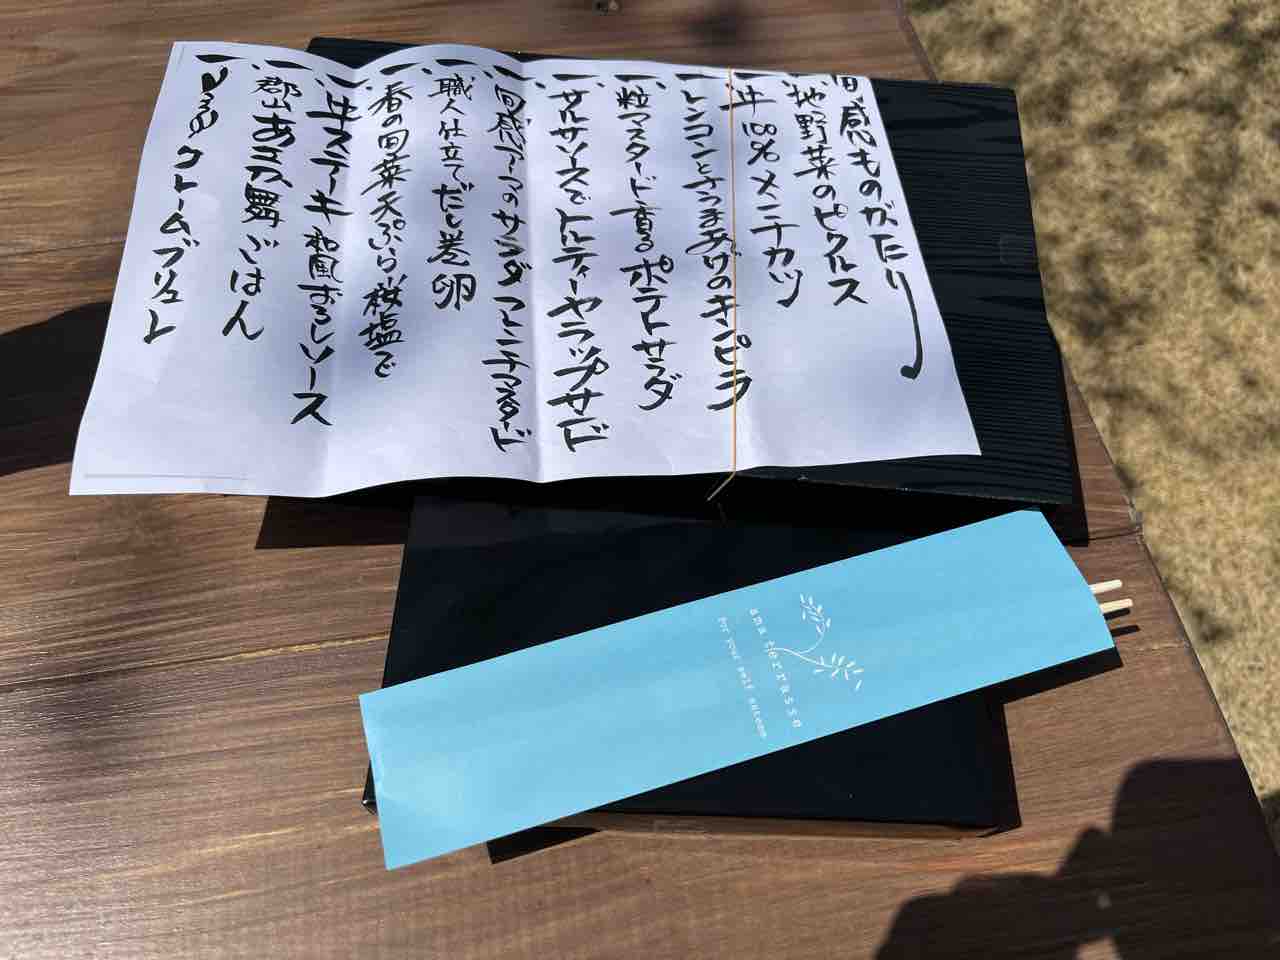 旬感ものがたり
一、地野菜のピクルス
一、牛100%メンチカツ
一、レンコンとさつまあげのキンピラ
一、粒マスタード香るポテトサラダ
一、サルサソースでトルティーヤラップサンド
一、旬感トマトのサラダ ハニーマスタード
一、職人仕立てだし巻卵
一、春の旬菜天ぷら 桜塩で
一、牛ステーキ和風おろしソース
一、郡山あさか舞ごはん
一、クレームブリュレ
ana terrasse
For your self autumn